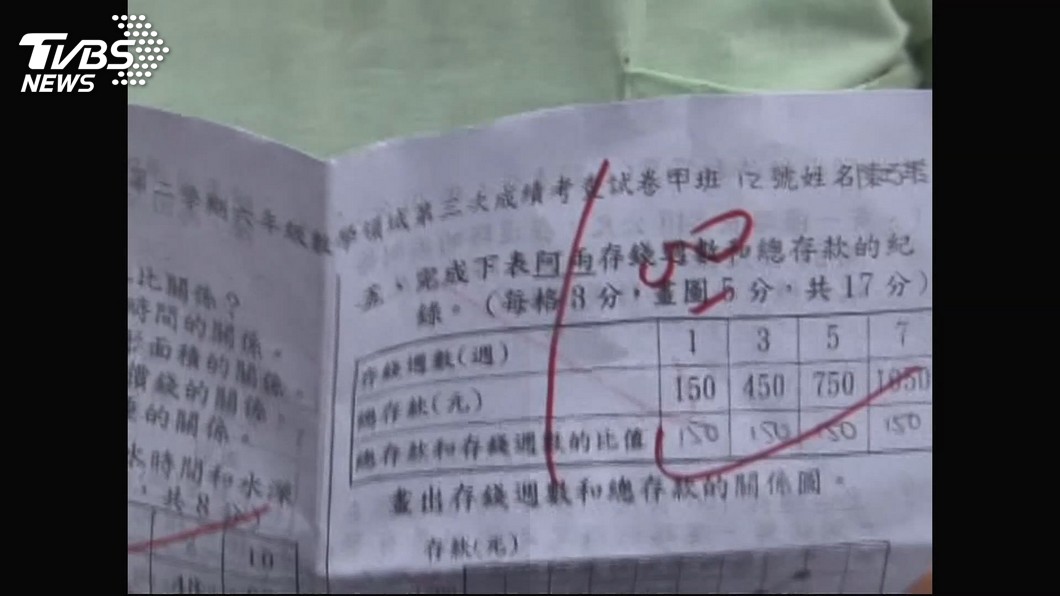 TVBS
NEWS
第二學期六年級數學領域第三次成績考查試卷甲班 12 號姓名
比關係?
時間的關係。
面積的關係。
價錢的關係。
的關係。
水時間和水深
,共8分)
10
48
50
完成下表阿雨存錢週數和總存款的紀
錄。(每格3分,畫圖5分,共17分)
存錢週數(週) 1 3 5 7
總存款(元) 150 450 750 1050
總存款和存錢週數的比值 150 150 150 150
畫出存錢週數和總存款的關係圖。
存款(元)